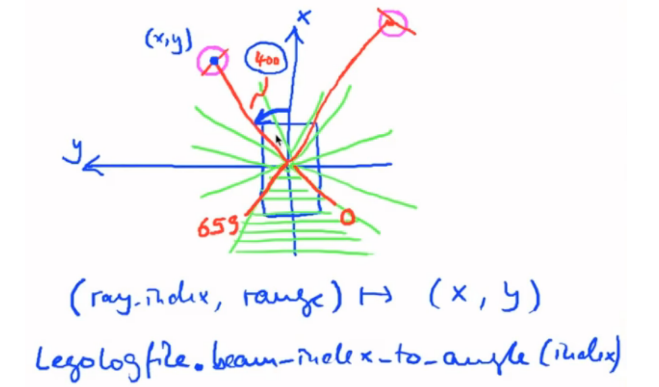 x
(x,y)
400
y
659
0
(ray-index, range) ↦ (x, y)
Legologfile.beam_index_to_angle(index)